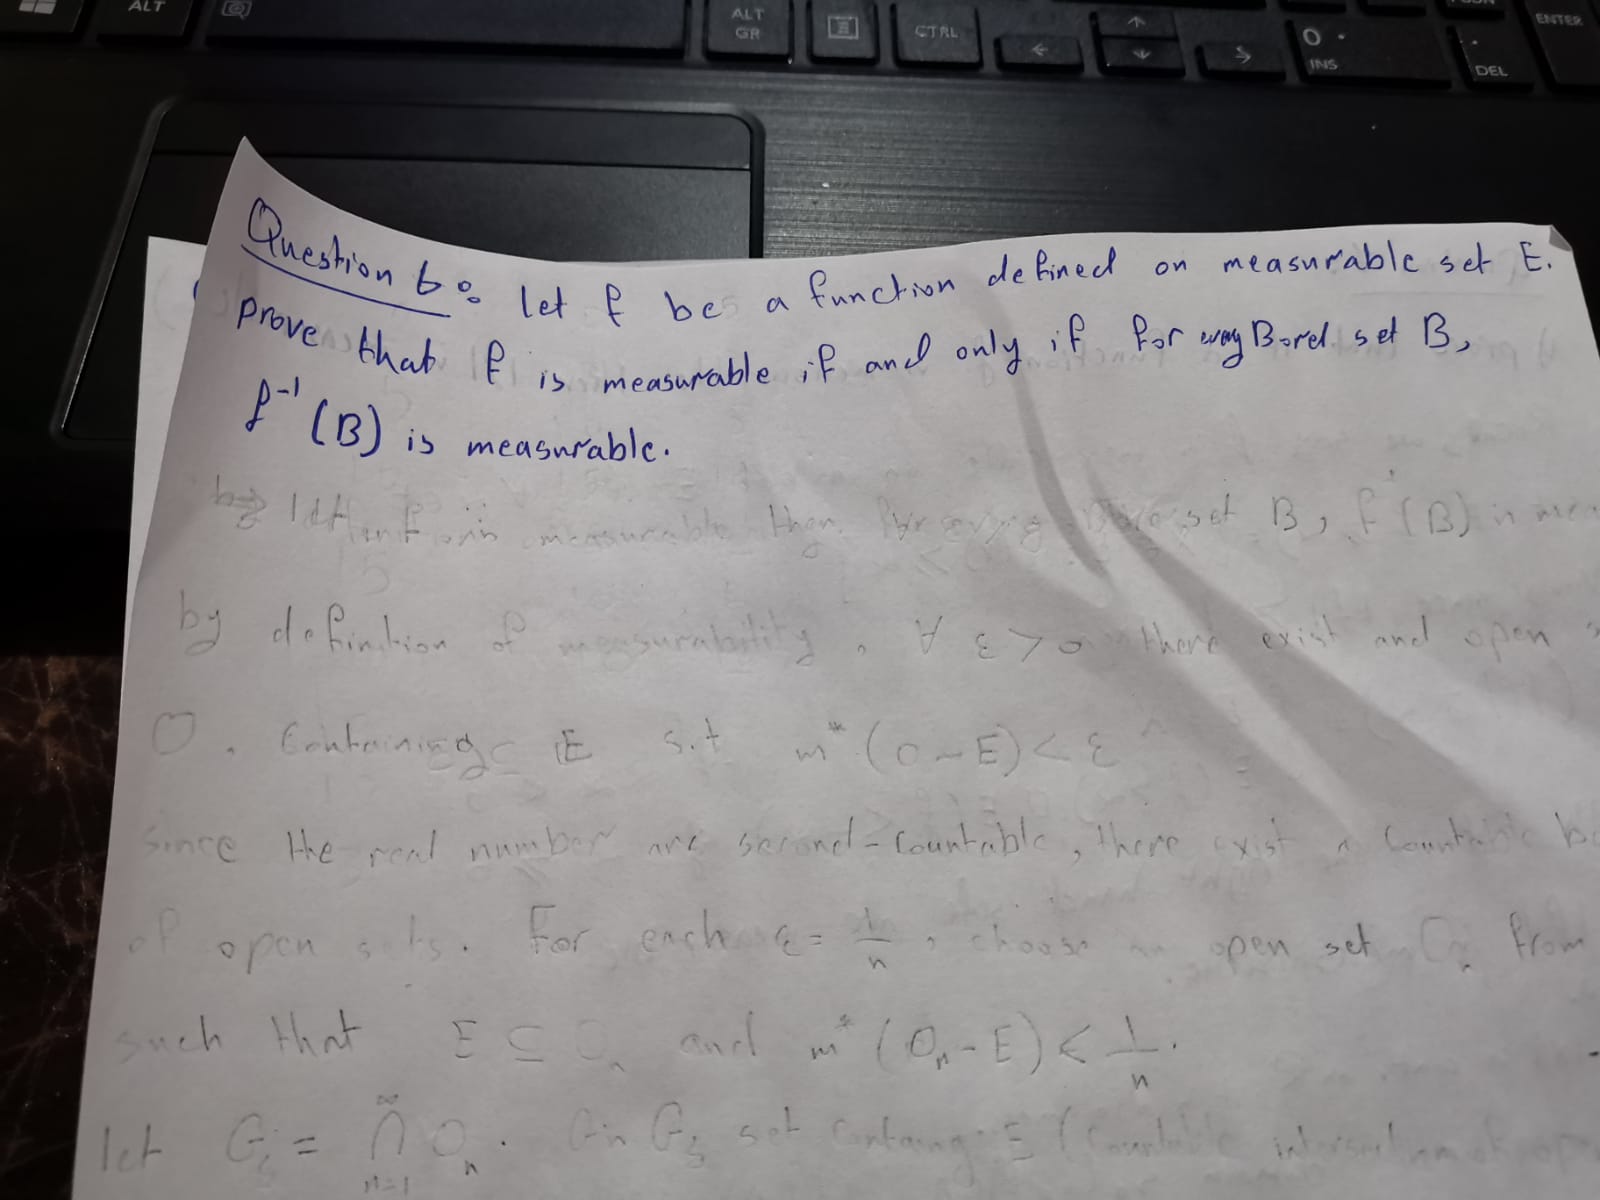 ALT
ALT GR
CTRL
0 .
INS
.
DEL
ENTER
Question 6: let f be a function defined on measurable set E.
prove that f is measurable if and only if for every Borel set B,
f⁻¹(B) is measurable.
measurable then for every set B, f⁻¹(B) is
by definition of measurability, ∀ ε > 0 there exist and open
O, Containing E s.t m*(O-E)<ε
since the real number are second-countable, there exist a
of open sets. For each ε = 1/n, choose an open set Oₙ from
such that E ⊆ Oₙ and m*(Oₙ-E) < 1/n.
let G = ∞∩n=1 Oₙ. set containing E (